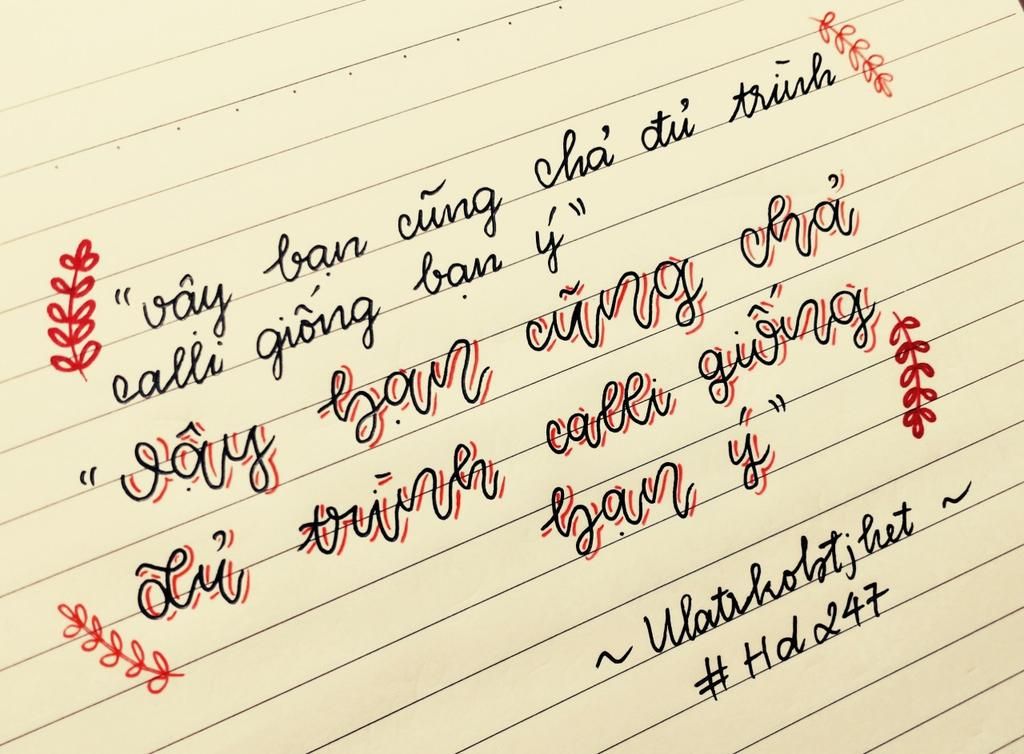 "vậy bạn cũng chả đủ trình
calli giống bạn ý"
"vậy bạn cũng chả
đủ trình calli giống
bạn ý"
~ Ulatrkobtjhet ~
#Hd247